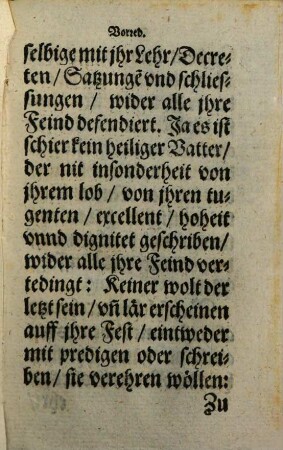 Vorred.
selbige mit jhr Lehr/Decre⸗
ten/Satzungē vnd schlies⸗
sungen / wider alle jhre
Feind defendiert. Ja es ist
schier kein heiliger Vatter/
der nit insonderheit von
jhrem lob / von jhren tu⸗
genten / excellent / hoheit
vnnd dignitet geschriben/
wider alle jhre Feind ver⸗
tedingt: Keiner wolt der
letzt sein / vn̄ lär erscheinen
auff jhre Fest / eintweder
mit predigen oder schrei⸗
ben / sie verehren wöllen:
Zu